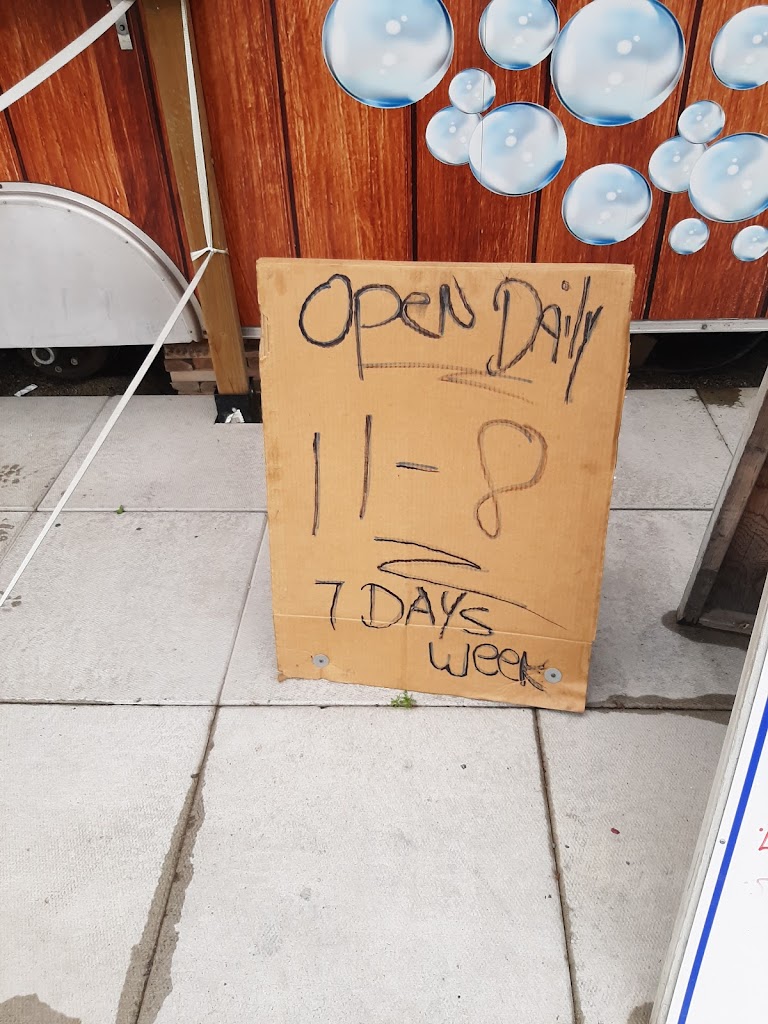 Open Daily
11-8
7 DAYS
week